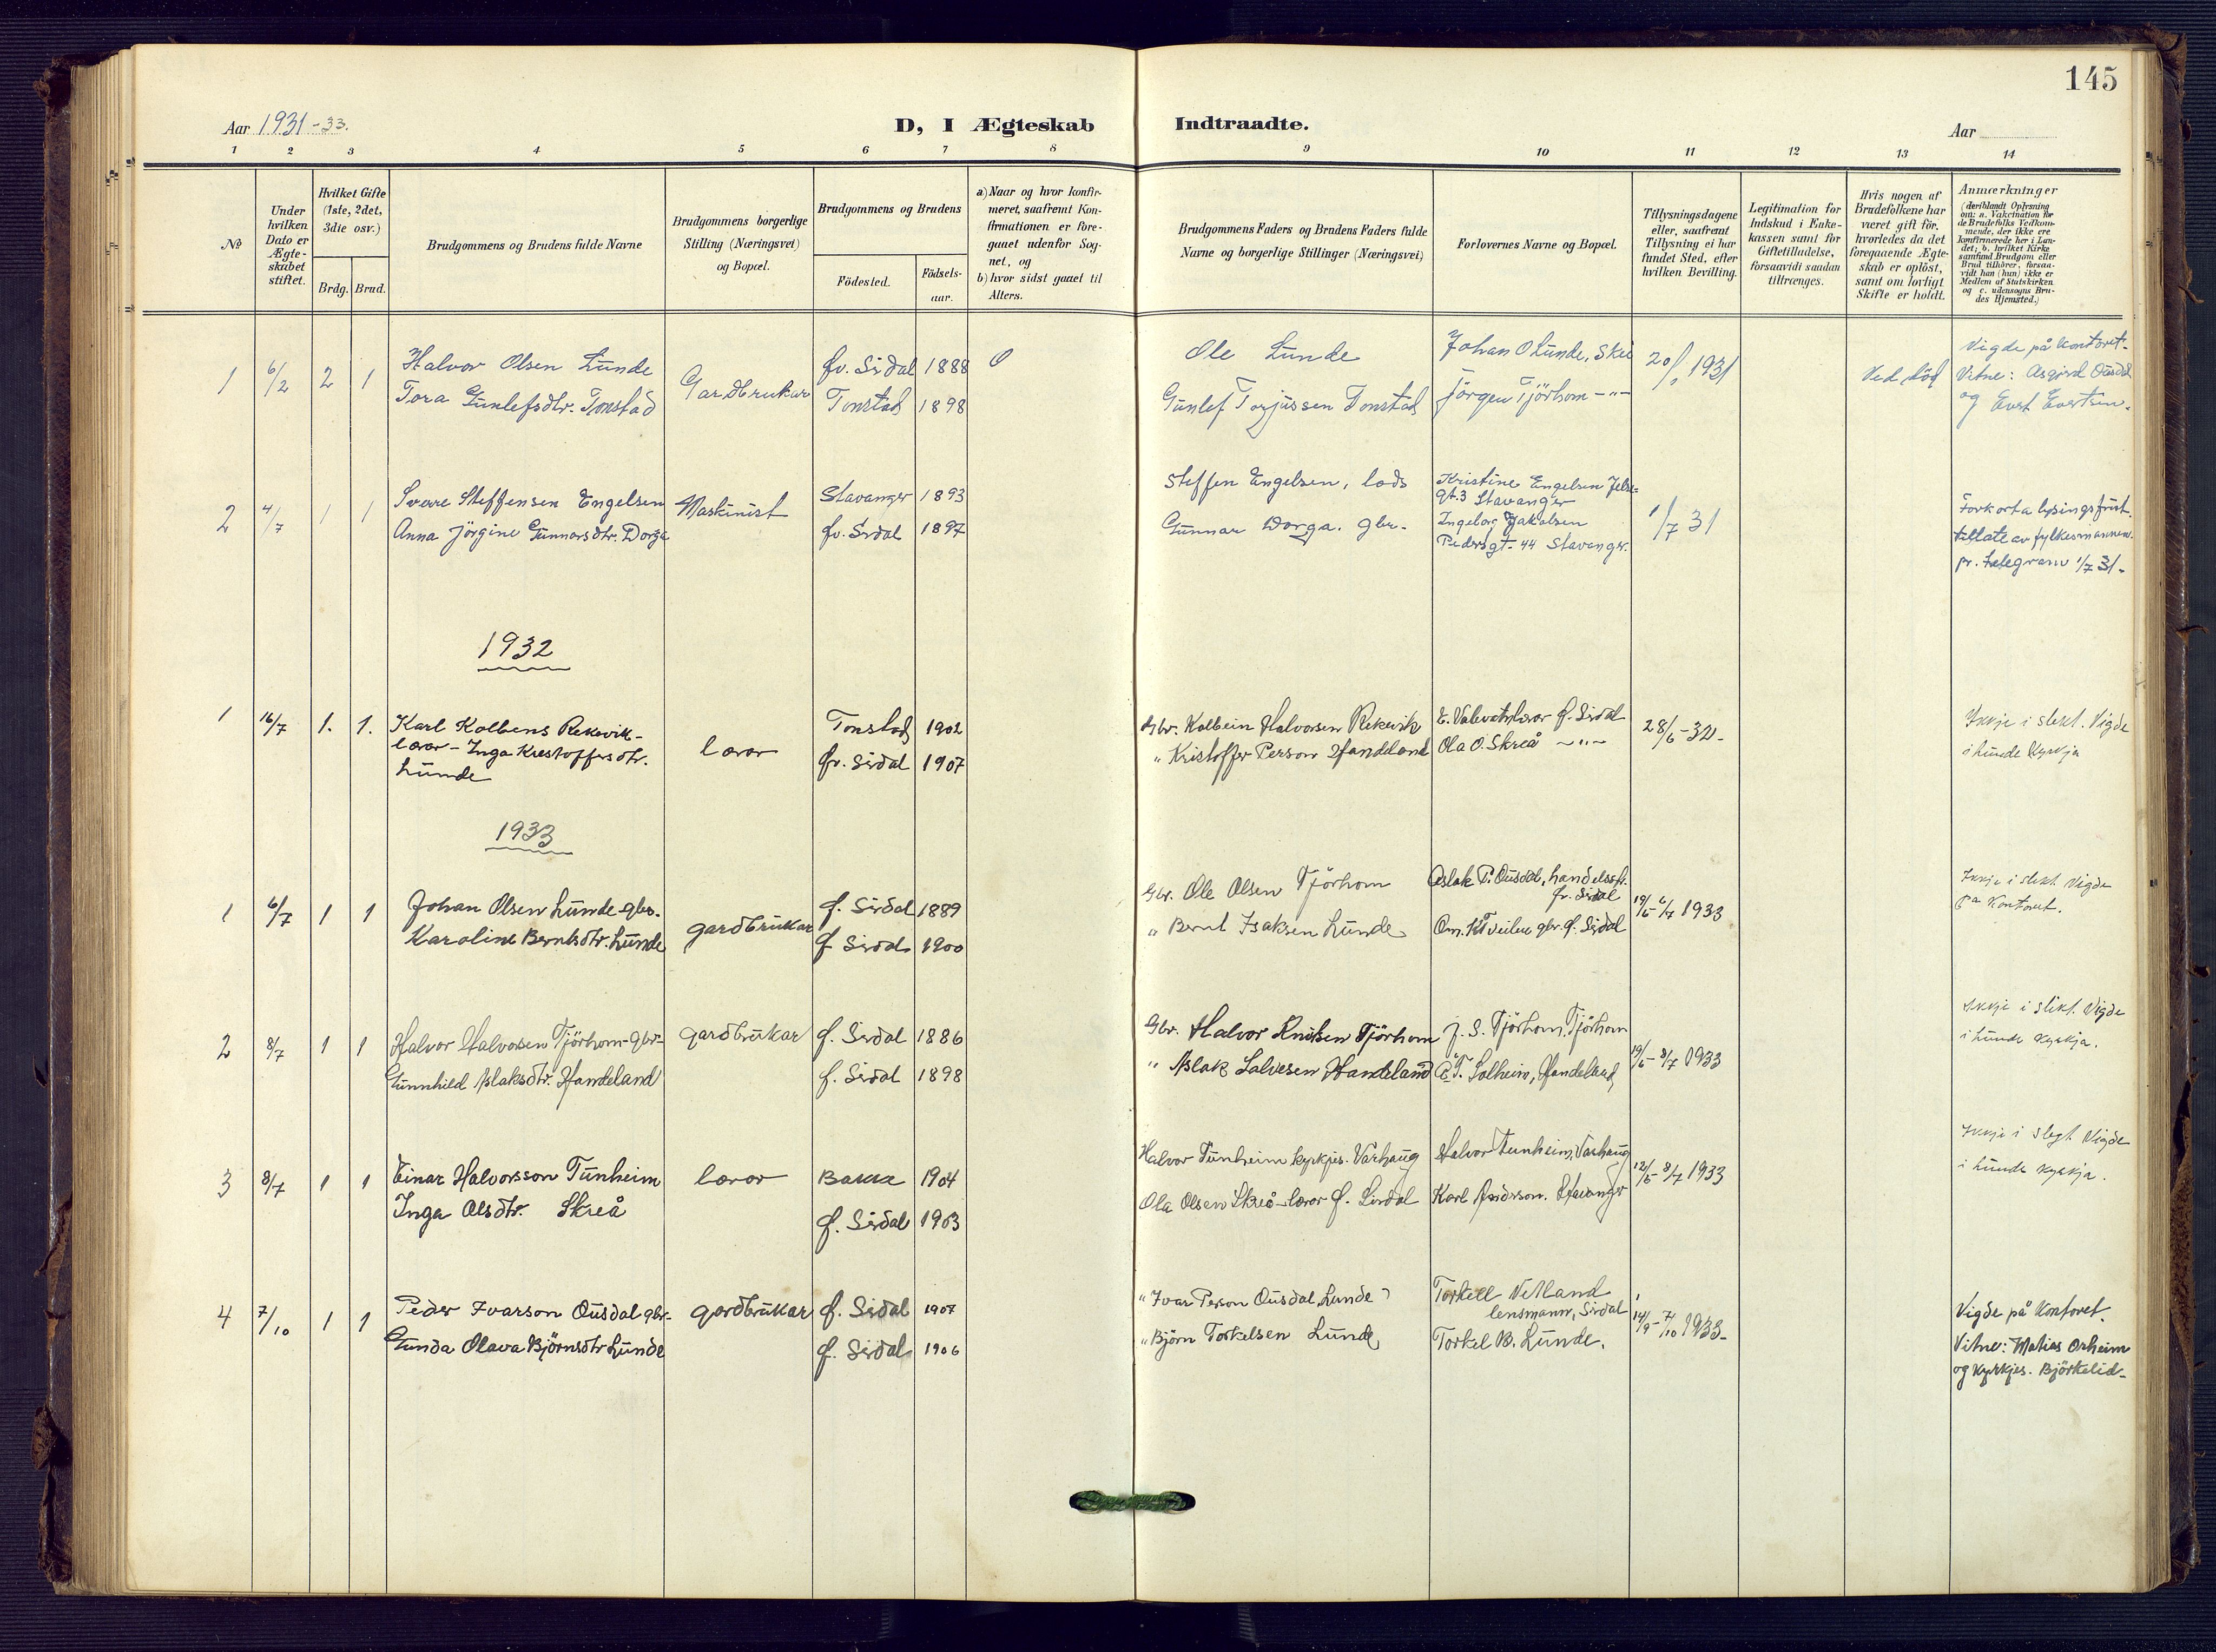 145
Aar 1931-33.
D, I Ægteskab Indtraadte.
Aar
1 2 3 4 5 6 7 8 9 10 11 12 13 14
No
Under hvilken Dato er Ægte-skabet stiftet.
Hvilket Gifte (1ste, 2det, 3die osv.)
Brdg. Brud.
Brudgommens og Brudens fulde Navne
Brudgommens borgerlige Stilling (Næringsvei) og Bopæl.
Brudgommens og Brudens
Födested.
Födsels-aar.
a) Naar og hvor konfir-meret, saafremt Kon-firmationen er fore-gaaet udenfor Sog-net, og
b) hvor sidst gaaet til Alters.
Brudgommens Faders og Brudens Faders fulde Navne og borgerlige Stillinger (Næringsvei)
Forlovernes Navne og Bopæl.
Tillysningsdagene eller, saafremt Tillysning ei har fundet Sted, efter hvilken Bevilling.
Legitimation for Indskud i Enke-kassen samt for Giftetilladelse, forsaavidt saadan tiltrænges.
Hvis nogen af Brudefolkene har været gift för, hvorledes da det foregaaende Ægte-skab er oplöst, samt om lovligt Skifte er holdt.
Anmærkninger
(deriblandt Oplysning om: a. Vakcination for de Brudefolks Vedkom-mende, der ikke ere konfirmerede her i Lan-det; b. hvilket Kirke-samfund Brudgom eller Brud tilhörer, forsaa-vidt han (hun) ikke er Medlem af Statskirken og c. udensogns Bru-des Hjemsted.)
1 6/2 2 1 Halvor Olsen Lunde Gardbrukar fv. Sirdal 1888 O Ole Lunde Johan O Lunde, Skei 20/1 1931 Ved död Vigde på kontoret.
Tora Gunlefsdtr. Tonstad Tonstad 1898 Gunlef Torjussen Tonstad Jörgen Tjörhom -"- Vitne: Asgjerd Ousdal
og Evert Evertsen.
2 4/7 1 1 Sverre Steffensen Engelsen Maskinist Stavanger 1893 Steffen Engelsen, lods Kristine Engelsen
gt. 3 Stavanger 1/7 31 Forkorta lysingsfrist
Anna Jörgine Gunnarsdtr. Dorga fv. Sirdal 1897 Gunnar Dorga. gbr. Ingeborg Jakobsen tillate av fylkesmannen
Pedersgt. 44 Stavanger. pr. telegram 1/7 31-
1932
1 16/7 1. 1. Karl Kolbens Rekevik- lærar Tonstad 1902 Gbr. Kolbein Halvorsen Rekevik E. Valevatn lærar f. Sirdal 28/6-32- Ikkje i slekt. Vigde
lærar - Inga Kristoffersdtr. fv. Sirdal 1907 " Kristoffer Person Handeland Ola O. Skreå -"- i Lunde kyrkja
Lunde
1933
1 6/7 1 1 Johan Olsen Lunde gbr. gardbrukar f. Sirdal 1889 Gbr. Ole Olsen Tjörhom Aslak P. Ousdal, handelsst.
fv. Sirdal 19/6-6/7 1933 Ikkje i slekt. Vigde
Karoline Berntsdtr. Lunde f. Sirdal 1900 " Bernt Isaksen Lunde Om. K. Tveiten gbr. f. Sirdal på kontoret.
2 8/7 1 1 Halvor Halvorsen Tjörhom-gbr- gardbrukar f. Sirdal 1886 Gbr. Halvor Knutsen Tjörhom J. S. Tjörhom, Tjörhom 19/6-8/7 1933 Ikkje i slekt. Vigde
Gunnhild Aslaksdtr. Handeland f. Sirdal 1898 " Aslak Salvesen Handeland A. T. Solheim, Handeland i Lunde kyrkja.
3 8/7 1 1 Einar Halvorsson Tunheim lærar Bakke 1904 Halvor Tunheim kyrkjes. Varhaug Halvor Tunheim, Varhaug 12/6-8/7 1933 Ikkje i slegt Vigde
Inga Olsdtr. Skreå f. Sirdal 1903 Ola Olsen Skreå-lærar f. Sirdal Karl Stavanger i Lunde kyrkja.
4 7/10 1 1 Peder Ivarson Ousdal gbr- gardbrukar f. Sirdal 1907 " Ivar Person Ousdal, Lunde Torkell Vetland
lensmann, Sirdal 14/9-7/10 1933- Vigde på kontoret.
Gunda Olava Björnsdtr Lunde f. Sirdal 1906 " Björn Torkelsen Lunde Torkel B. Lunde. Vitne: Matias Orheim
og kyrkjes. Björkelid-